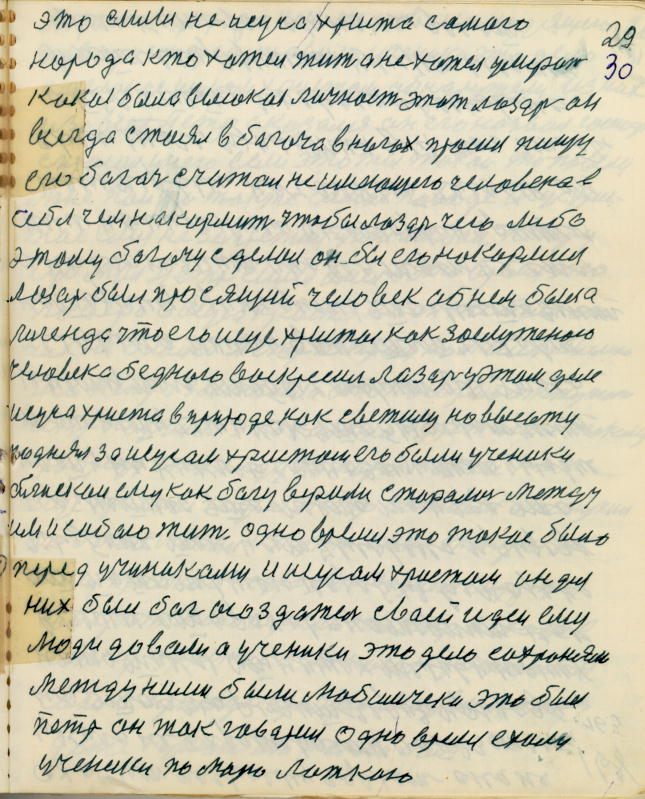 29
30
это сами не исуса христа самого
народа кто хотел жит а не хотел умерат
какая была высокая личност этот лазар он
всегда стоял в багоча в ногах просил пищу
его багач считал не имающего человека в
себя чем накормит чтобы лазар чего либо
этому багочу сделал он бы его накормил
лазар был просящий человек а о нем была
легенда что его исус христос как заслуженого
человека бедного воскресил лазару этом деле
исуса христа в природе как светилу на высоту
поднял за исусам христом его были ученики
ему как богу верили старалис между
им и собою жит. одно время это такое было
перед учиниками и исусам христом он для
них был бог а создател своей идеи ему
люди довали а ученики это дело сохраняли
между ними были любимчеки это был
петр он так гаварил одно время ехали
ученики по маро лоткаю